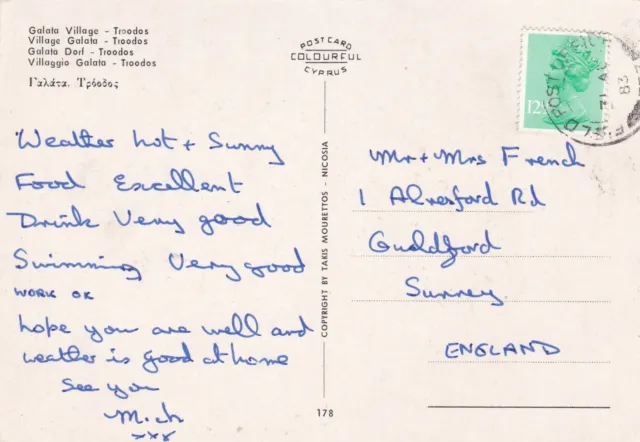 Galata Village - Troodos
Village Galata - Troodos
Galata Dorf - Troodos
Villaggio Galata - Troodos
Γαλάτα, Τρόοδος
POST CARD
COLOURFUL
CYPRUS
Weather hot + Sunny
Food Excellent
Drink Very good
Swimming Very good
WORK OK
hope you are well and
weather is good at home
See you
M.ch
xxx
COPYRIGHT BY TAKIS MOURETTOS - NICOSIA
178
12½
FIELD POST OFFICE
83
Mr + Mrs French
1 Alresford Rd
Guildford
Surrey
ENGLAND